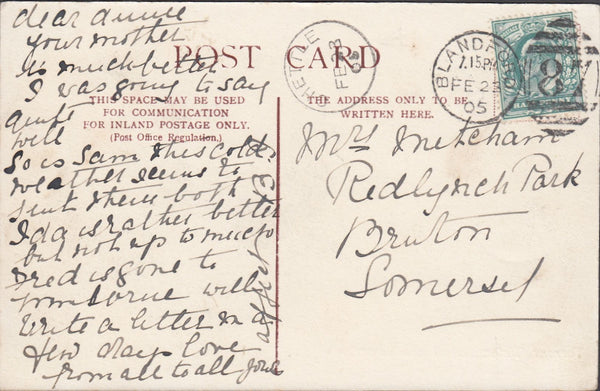 POST CARD
THIS SPACE MAY BE USED
FOR COMMUNICATION
FOR INLAND POSTAGE ONLY.
(Post Office Regulation.)
THE ADDRESS ONLY TO BE
WRITTEN HERE.
dear annie
your mother
is much better
I was going to say
quite
well
So is Sam this cold
weather seems to
suit them both
Ida is rather better
but not up to much
Fred is gone to
will
Write a letter in a
few days love
from all to all
Mrs Metcham
Redlynch Park
Bruton
Somerset
FE 23
05
BLANDFORD
7.15PM
FE 23
05